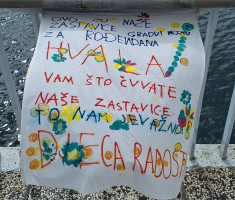 OVO SU NAŠE
ZASTAVICE
ZA GRADU MOMU
ROĐENDANA
HVALA!
VAM ŠTO ČUVATE
NAŠE ZASTAVICE
TO NAM JE VAŽNO!
DJECA RADOSTI